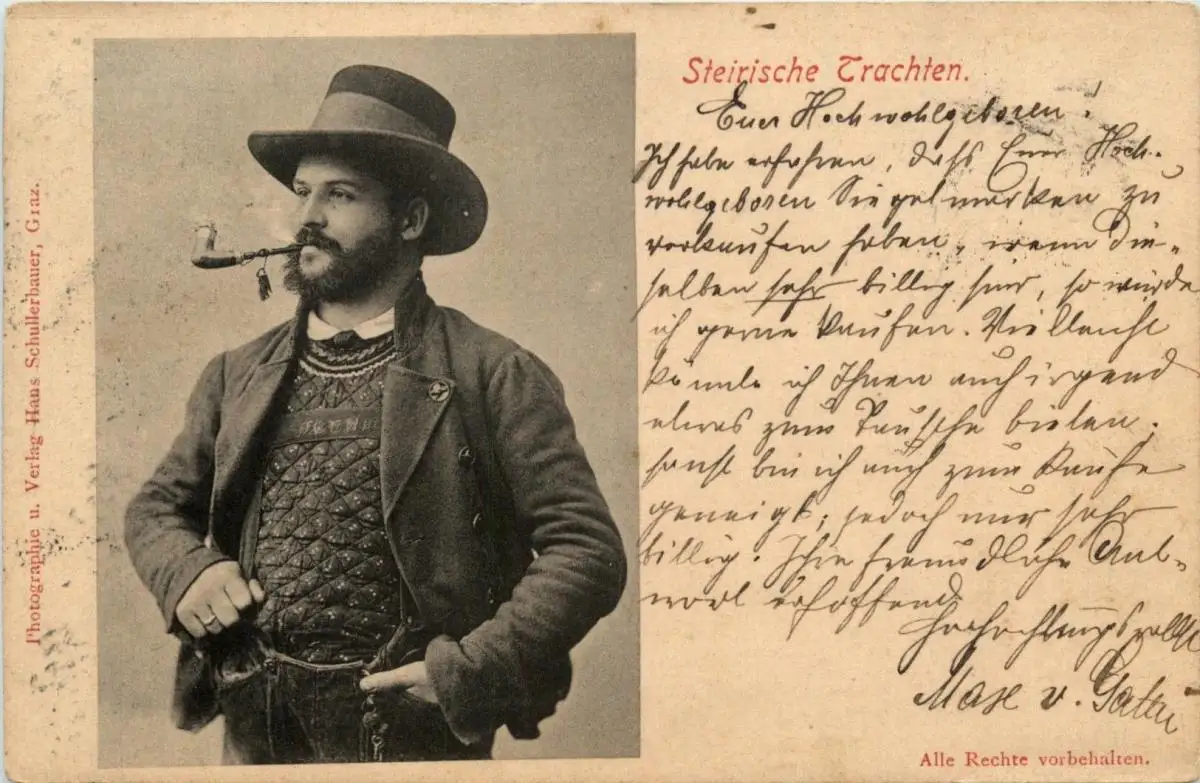 Steirische Trachten.
Euer Hochwohlgeboren!
Ich habe erfahren, daß Euer Hoch-
wohlgeboren Siegelmarken zu
verkaufen haben, wenn die-
selben sehr billig sind, so würde
ich gerne kaufen. Vielleicht
könnte ich Ihnen auch irgend
etwas zum Tausche bieten,
sonst bin ich auch zum Kaufe
geneigt; jedoch nur sehr
billig. Ihre freundliche Ant-
wort erhoffend
Hochachtungsvollst
Max v.
Alle Rechte vorbehalten.
Photographie u. Verlag Hans Schullerbauer, Graz.